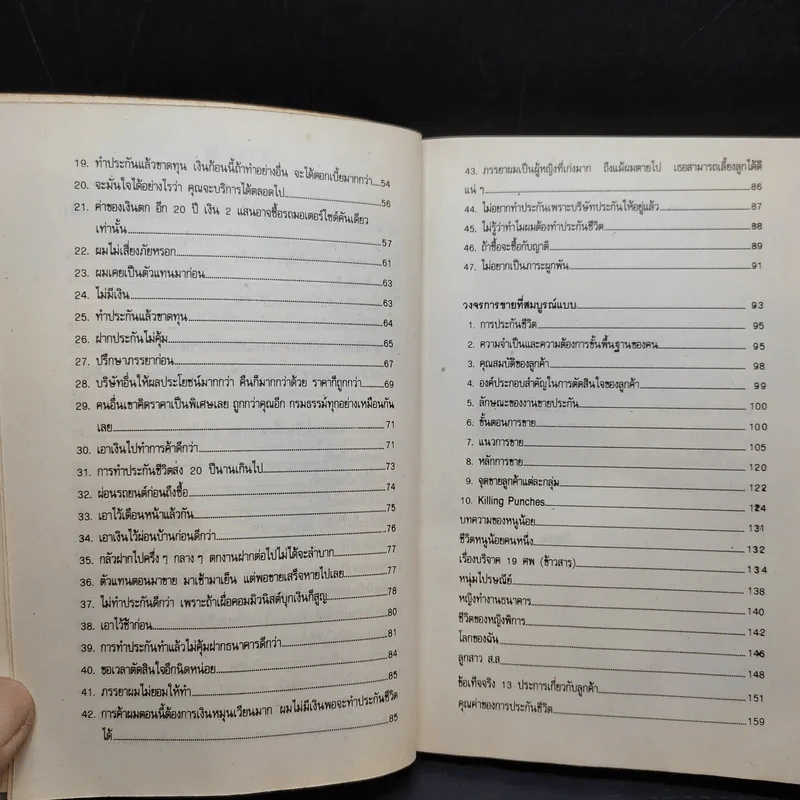 19. ทำประกันแล้วขาดทุน เงินก้อนนี้ถ้าทำอย่างอื่น จะได้ดอกเบี้ยมากกว่า....54
20. จะมั่นใจได้อย่างไรว่า คุณจะบริการได้ตลอดไป....56
21. ค่าของเงินตก อีก 20 ปี เงิน 2 แสนอาจซื้อรถมอเตอร์ไซด์คันเดียว
เท่านั้น....57
22. ผมไม่เสี่ยงภัยหรอก....61
23. ผมเคยเป็นตัวแทนมาก่อน....63
24. ไม่มีเงิน....63
25. ทำประกันแล้วขาดทุน....64
26. ฝากประกันไม่คุ้ม....65
27. ปรึกษาภรรยาก่อน....67
28. บริษัทอื่นให้ผลประโยชน์มากกว่า คืนก็มากกว่าด้วย ราคาก็ถูกกว่า....69
29. คนอื่นเขาคิดราคาเป็นพิเศษเลย ถูกกว่าคุณอีก กรมธรรม์ทุกอย่างเหมือนกัน
เลย....71
30. เอาเงินไปทำการค้าดีกว่า....71
31. การทำประกันชีวิตส่ง 20 ปีนานเกินไป....73
32. ผ่อนรถยนต์ก่อนถึงซื้อ....74
33. เอาไว้เดือนหน้าแล้วกัน....75
34. เอาเงินไว้ผ่อนบ้านก่อนดีกว่า....76
35. กลัวฝากไปครึ่ง ๆ กลาง ๆ ตกงานฝากต่อไปไม่ได้จะลำบาก....77
36. ตัวแทนตอนมาขาย มาเช้ามาเย็น แต่พอขายเสร็จหายไปเลย....77
37. ไม่ทำประกันดีกว่า เพราะถ้าเผื่อคอมมิวนิสต์บุกเงินก็สูญ....78
38. เอาไว้ช้าก่อน....80
39. การทำประกันทำแล้วไม่คุ้มฝากธนาคารดีกว่า....81
40. ขอเวลาตัดสินใจอีกนิดหน่อย....84
41. ภรรยาผมไม่ยอมให้ทำ....85
42. การค้าผมตอนนี้ต้องการเงินหมุนเวียนมาก ผมไม่มีเงินพอจะทำประกันชีวิต
ได้....85
43. ภรรยาผมเป็นผู้หญิงที่เก่งมาก ถึงแม้ผมตายไป เธอสามารถเลี้ยงลูกได้ดี
แน่ ๆ....86
44. ไม่อยากทำประกันเพราะบริษัทประกันให้อยู่แล้ว....87
45. ไม่รู้ว่าทำไมผมต้องทำประกันชีวิต....88
46. ถ้าซื้อจะซื้อกับญาติ....89
47. ไม่อยากเป็นภาระผูกพัน....91
วงจรการขายที่สมบูรณ์แบบ....93
1. การประกันชีวิต....95
2. ความจำเป็นและความต้องการขั้นพื้นฐานของคน....95
3. คุณสมบัติของลูกค้า....98
4. องค์ประกอบสำคัญในการตัดสินใจของลูกค้า....99
5. ลักษณะของงานขายประกัน....100
6. ขั้นตอนการขาย....100
7. แนวการขาย....105
8. หลักการขาย....120
9. จุดขายลูกค้าแต่ละกลุ่ม....122
10. Killing Punches....124
บทความของหนูน้อย....131
ชีวิตหนูน้อยคนหนึ่ง....132
เรื่องบริจาค 19 ศพ (ข้าวสาร)....134
หนุ่มไปรษณีย์....138
หญิงทำงานธนาคาร....140
ชีวิตของหญิงพิการ....142
โลกของฉัน....146
ลูกสาว ส.ส....148
ข้อเท็จจริง 13 ประการเกี่ยวกับลูกค้า....151
คุณค่าของการประกันชีวิต....159